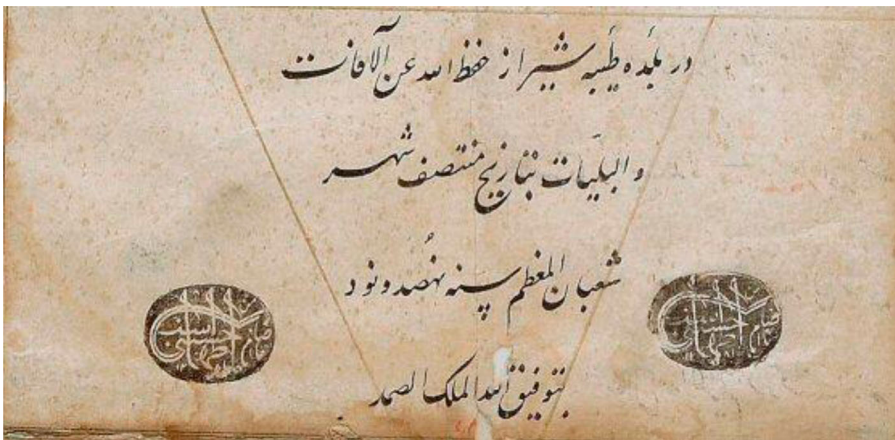 در بلده طیبه شیراز حفظ الله عن الآفات
و البلیّات بتاریخ منتصف شهر
شعبان المعظم سنه نهصد و نود
بتوفیق الله الملک الصمد